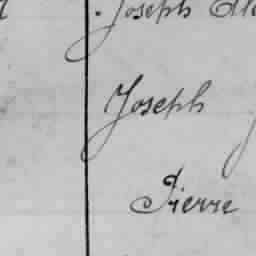 Joseph
Joseph
Pierre